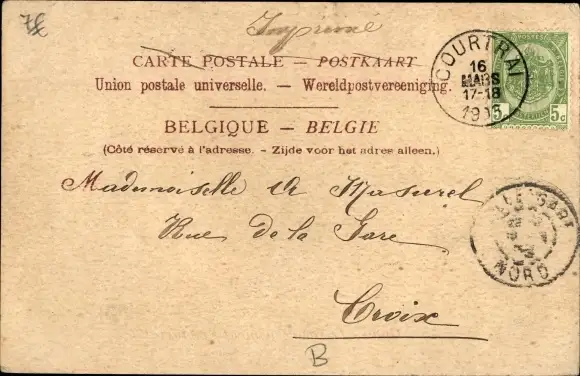 7€
Imprimé
CARTE POSTALE — POSTKAART
Union postale universelle. — Wereldpostvereeniging.
BELGIQUE — BELGIE
(Côté réservé à l'adresse. - Zijde voor het adres alleen.)
COURTRAI
16
MARS
17-18
5 5c
Mademoiselle Masurel
Rue de la Gare
NORD
Croix
B